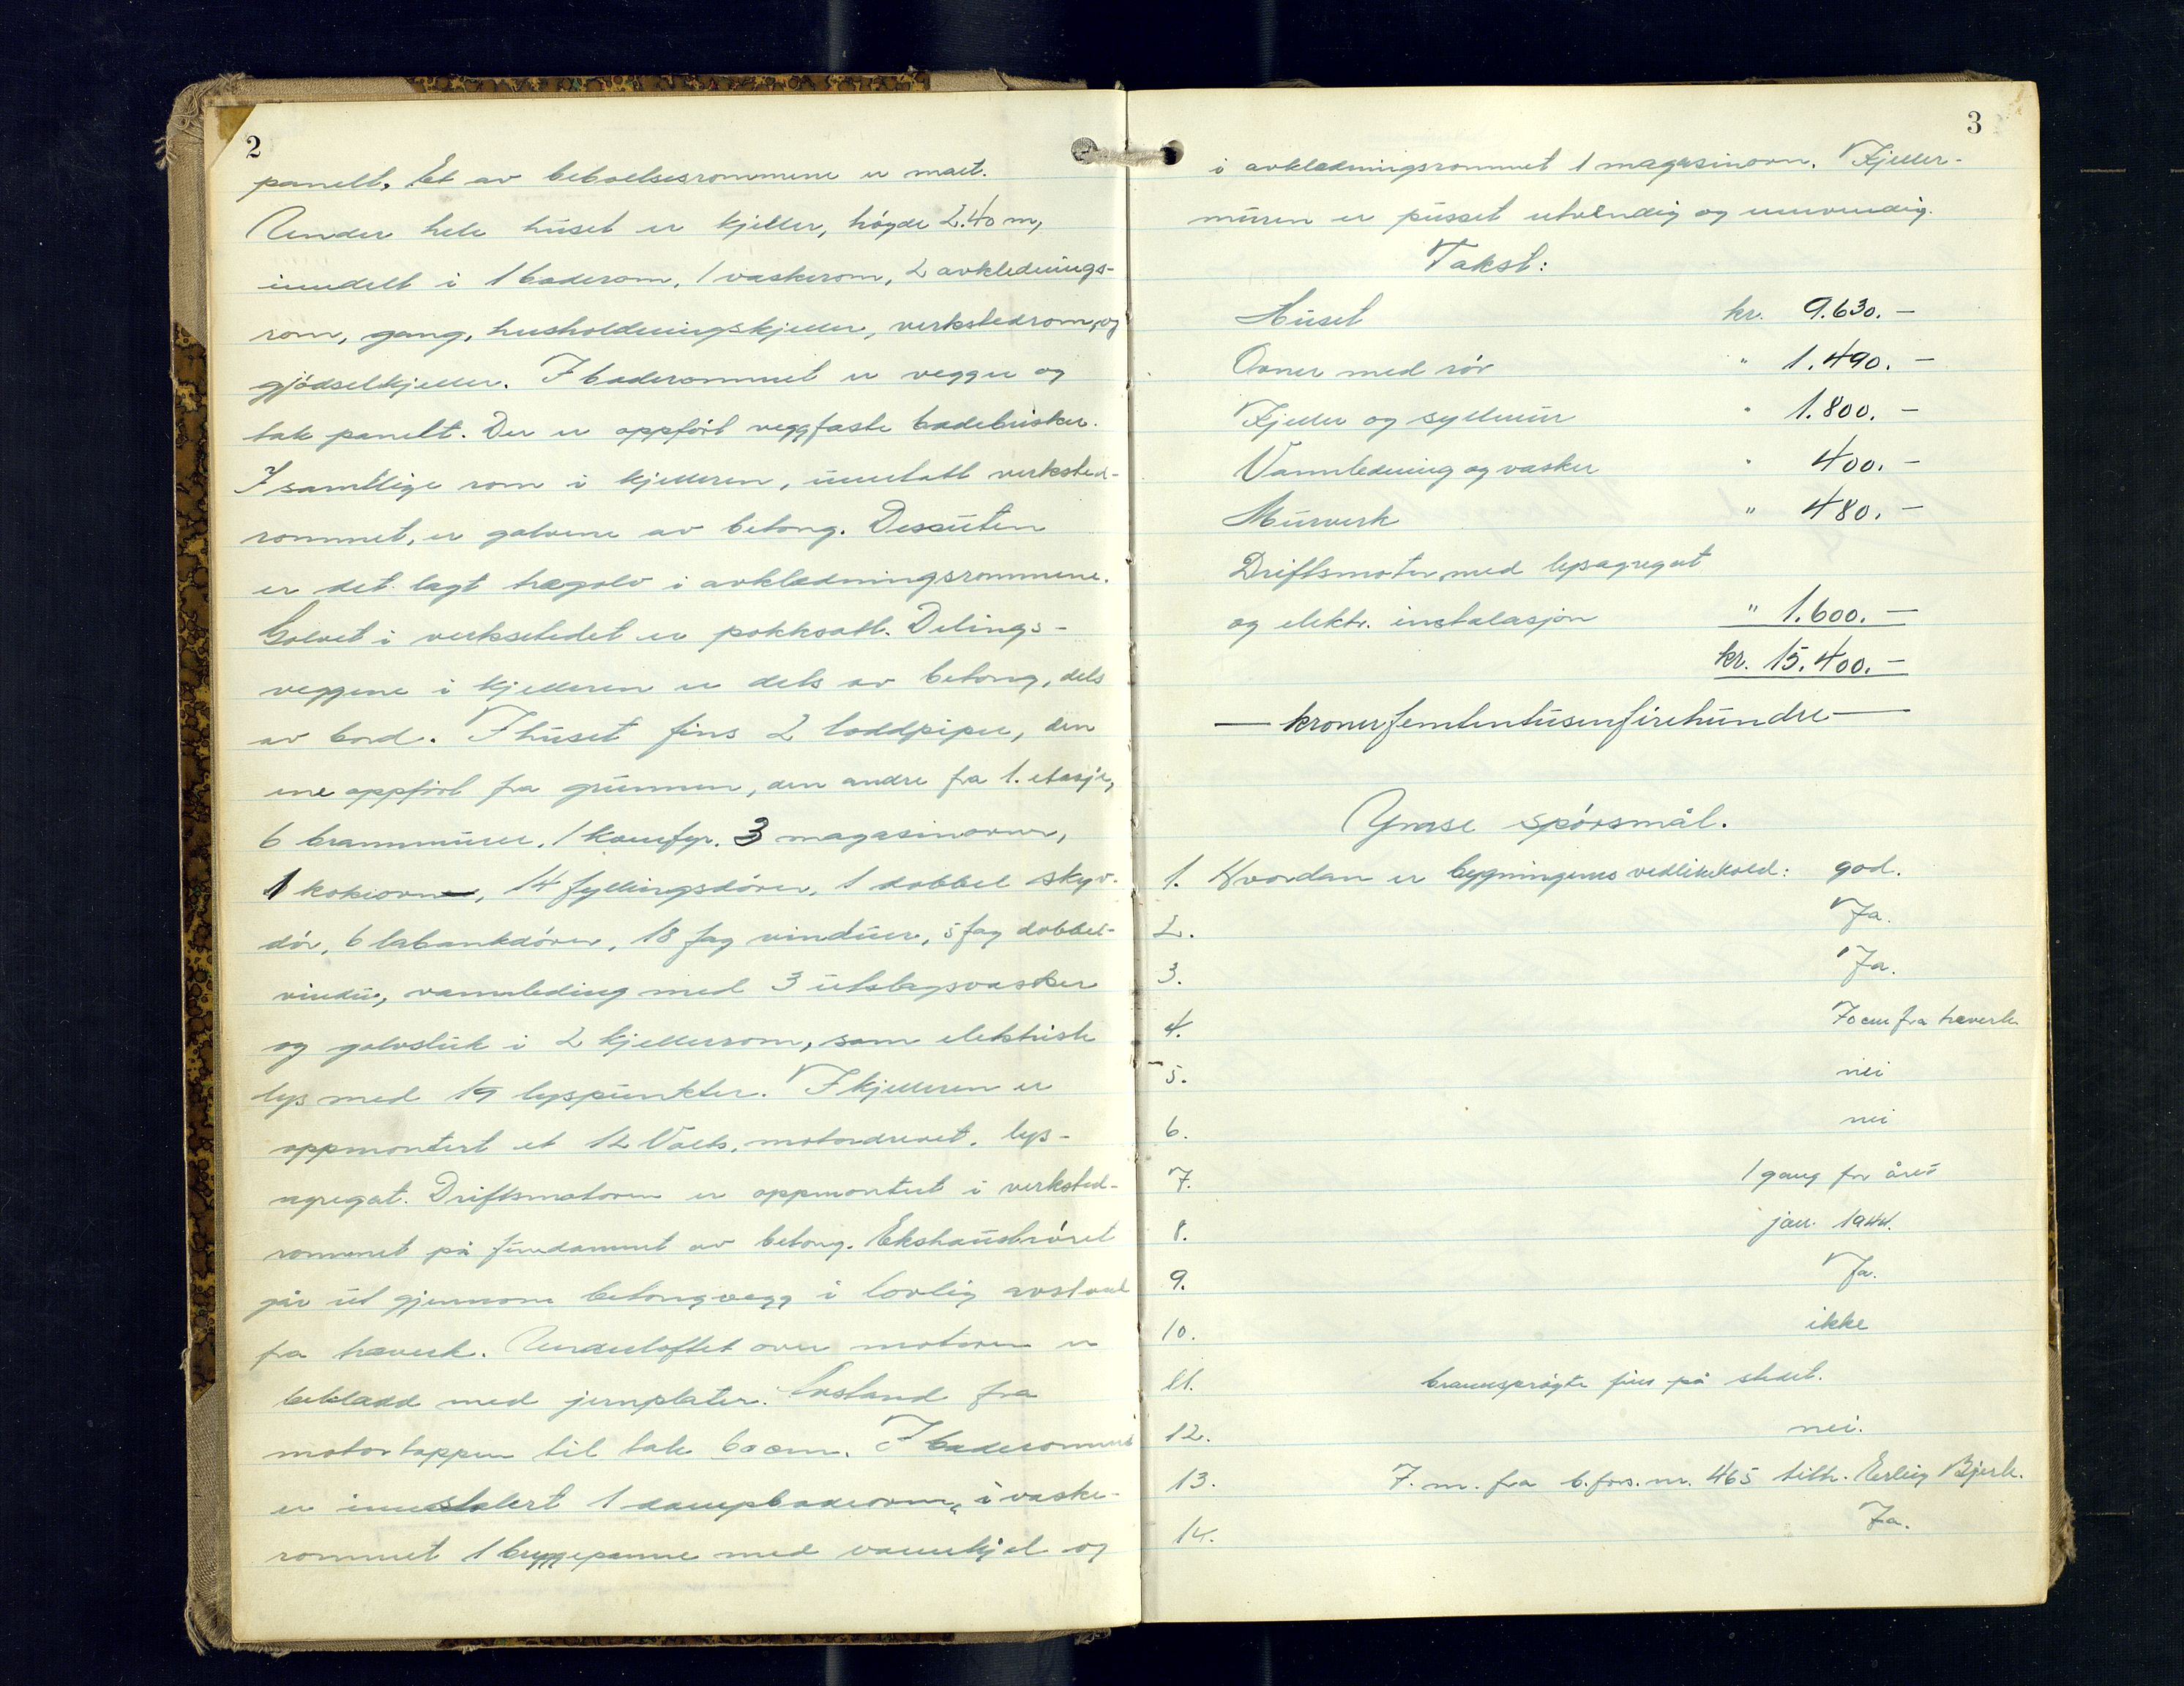 2
panelt. Et av beboelsesrommene er malt.
Under hele huset er kjeller, högde 2.40 m,
inndelt i 1 baderom, 1 vaskerom, 2 avklednings-
rom, gang, husholdningskjeller, verkstedrom, og
gjödselkjeller. I baderommet er vegger og
tak panelt. Der er oppfört veggfaste badebrisker.
I samtlige rom i kjelleren, unntatt verksted-
rommet, er golvene av betong. Dessuten
er det lagt tregolv i avkledningsrommene.
Golvet i verkstedet er pokksatt. Delings-
veggene i kjelleren er dels av betong, dels
av bord. I huset fins 2 loddpiper, den
ene oppfört fra grunnen, den andre fra 1. etasje,
6 brannmurer, 1 komfyr, 3 magasinovner,
1 koksovn, 14 fyllingsdörer, 1 dobbel skyv-
dör, 6 labankdörer, 18 fag vinduer, 5 fag dobbel-
vindu, vannleding med 3 utslagsvasker
og golvsluk i 2 kjellerrom, samt elektrisk
lys med 19 lyspunkter. I kjelleren er
oppmontert et 12 Volts, motordrevet, lys-
agregat. Driftsmotoren er oppmontert i verksted-
rommet på fundament av betong. Ekshauströret
går ut gjennom betongvegg i lovlig avstand
fra treverk. Underloftet over motoren er
bekladd med jernplater. Avstand fra
motortoppen til tak 60 cm. I baderommet
er innstalert 1 dampbadeovn, i vaske-
rommet 1 bryggepanne med vannkjel og
3
i avkledningsrommet 1 magasinovn. Kjeller-
muren er pusset utvendig og innvendig.
Takst:
Huset kr. 9.630.-
Ovner med rör " 1.490.-
Kjeller og syllmur " 1.800.-
Vannledning og vasker " 400.-
Murverk " 480.-
Driftsmotor med lysagregat
og elektr. instalasjon " 1.600.-
kr. 15.400.-
— kroner femtentusenfirehundre —
Ymse spörsmål.
1. Hvordan er bygningenes vedlikehold: god.
2. Ja.
3. Ja.
4. 70 cm fra treverk
5. nei
6. nei
7. 1 gang for året
8. jan. 1944.
9. Ja.
10. ikke
11. brannspröyte fins på stedet.
12. nei.
13. 7. m. fra b.fors.nr. 465 tilh. Erling Bjerk.
14. Ja.